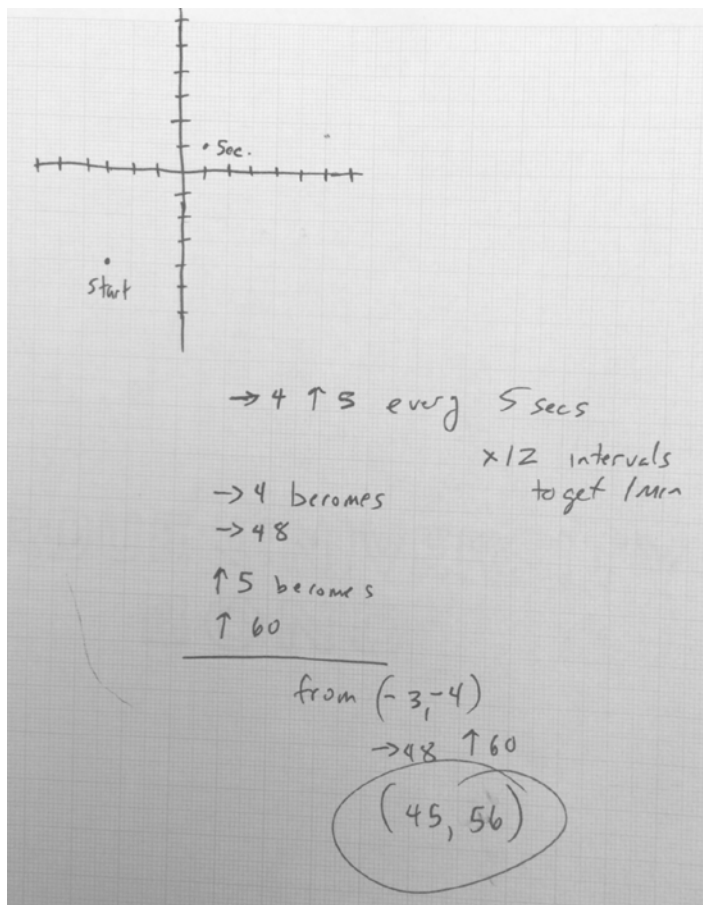 . 5 sec.
start
→ 4 ↑ 5 every 5 secs
x12 intervals
to get 1 min
→ 4 becomes
→ 48
↑ 5 becomes
↑ 60
from (-3, -4)
→ 48 ↑ 60
(45, 56)